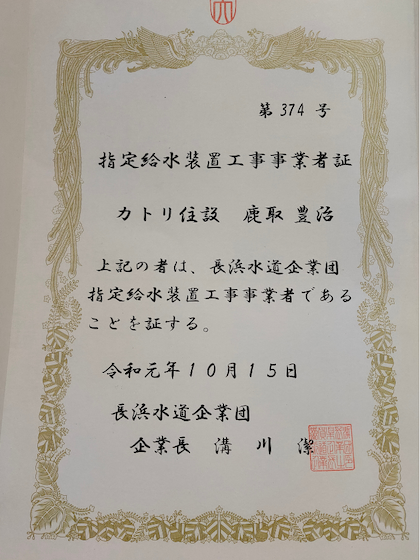 第374号
指定給水装置工事事業者証
カトリ住設 鹿取 豊治
上記の者は、長浜水道企業団
指定給水装置工事事業者である
ことを証する。
令和元年10月15日
長浜水道企業団
企業長 溝川 潔